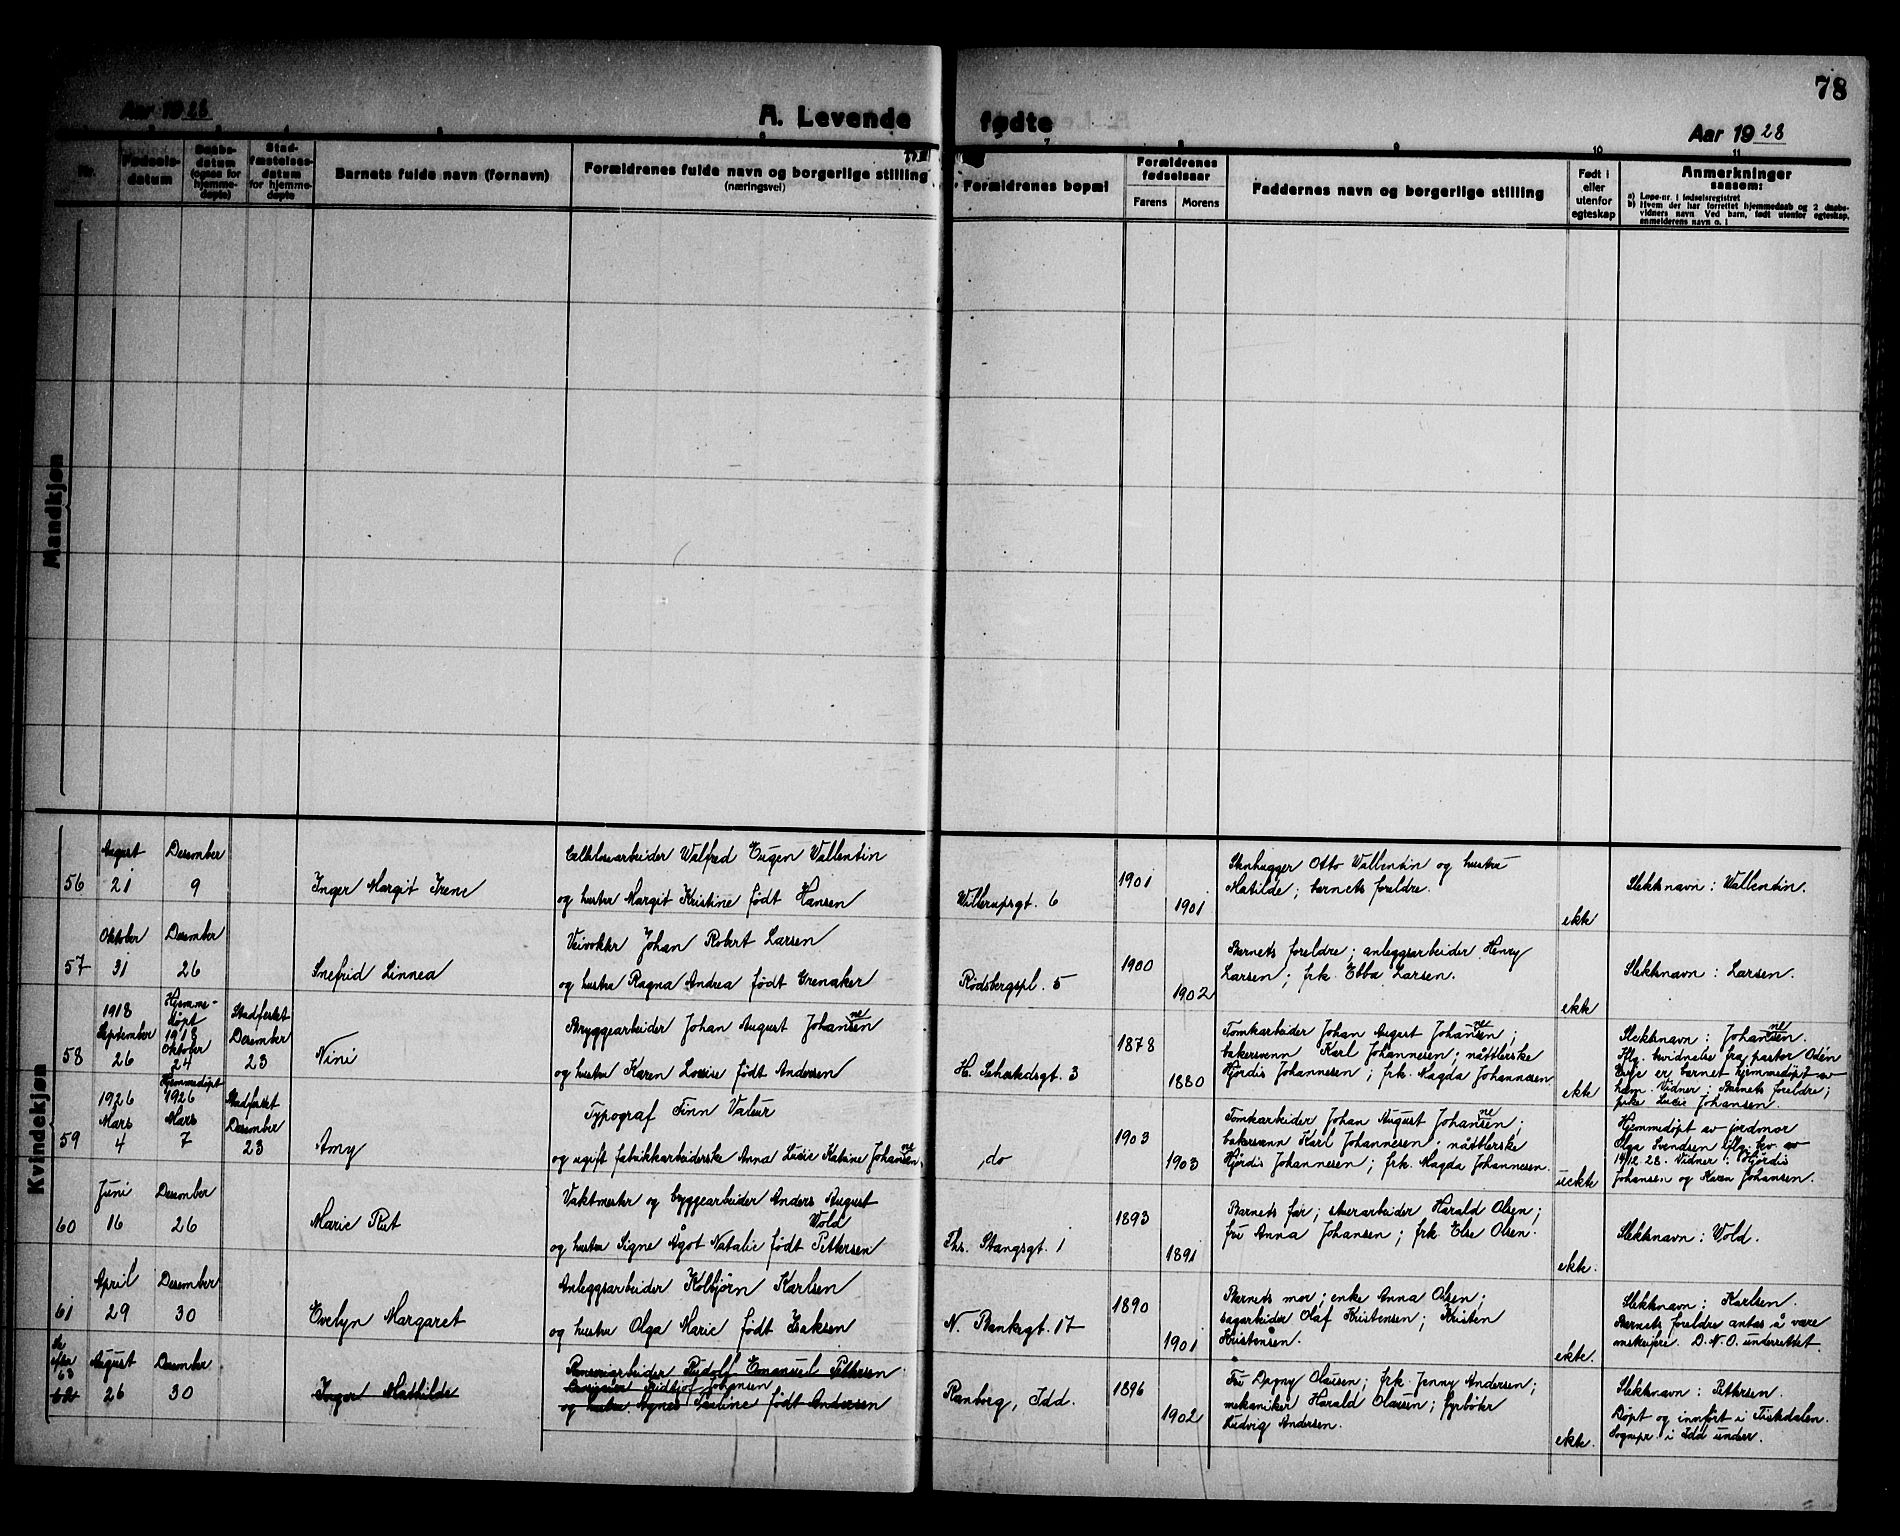 78
Aar 1928
A. Levende
fødte
Aar 1928
Nr.
Fødsels-
datum
Daabs-
datum
(ogsaa for
hjemme-
døpte)
Stad-
fæstelses-
datum
for hjemme-
døpte
Barnets fulde navn (fornavn)
Forældrenes fulde navn og borgerlige stilling
(næringsvei)
7
8
9
10
11
Forældrenes bopæl
Forældrenes
fødselsaar
Farens
Morens
Faddernes navn og borgerlige stilling
Født i
eller
utenfor
egteskap
Anmerkninger
saasom:
a) Løpe-nr. i fødselsregistret
b) Hvem der har forrettet hjemmedaab og 2 daabs-
vidners navn Ved barn, født utenfor egteskap,
anmelderens navn o. l
Mandkjøn
Kvindekjøn
56
August
21
Desember
9
Inger Margit Irene
Cellulosearbeider Walfred Eugen Wallentin
og hustru Margit Kristine født Hansen
Wallerupsgt. 6
1901
1901
Stenhugger Otto Wallentin og hustru
Matilde; barnets foreldre.
ekte
Slektsnavn: Wallentin.
57
Oktober
31
Desember
26
Snefrid Linnea
Veivokter Johan Robert Larsen
og hustru Ragna Andrea født Grenaker
Rødsbergspl. 5
1900
1902
Barnets foreldre; anleggsarbeider Henry
Larsen; frk. Ebba Larsen.
ekte
Slektsnavn: Larsen.
58
1918
September
26
Hjemme-
døpt
1918
Oktober
24
Stadfestet
Desember
23
Nini
Bryggearbeider Johan August Johansen
ne
og hustru Karen Louise født Andersen
H. Schultdsgt. 3
1878
1880
Tomtearbeider Johan August Johansen;
ne
bakersvenn Karl Johannesen; nåtlerske
Hjørdis Johannesen; frk. Magda Johannesen
ekte
Slektsnavn: Johansen.
ne
Iflg. bevidnelse fra pastor Odén
Berje er barnet hjemmedøpt av
ham. Vidner: Barnets foreldre;
frk. Lucie Johansen.
59
1926
Mars
4
Hjemmedøpt
1926
Mars
7
Stadfestet
Desember
23
Amy
Typograf Finn Valeur
og ugift fabrikkarbeiderske Anna Lucie Katrine Johansen
ne
do
1903
1903
Tomtearbeider Johan August Johansen;
ne
bakersvenn Karl Johannesen; nåtlerske
Hjørdis Johannesen; frk. Magda Johannesen.
uekte
Hjemmedøpt av jordmor
Olga Svendsen iflg. bev. av
19/12 28. Vidner: Hjørdis
Johansen og Karen Johansen.
60
Juni
16
Desember
26
Marie Rut
Vaktmester og bryggearbeider Anders August
Wold
og hustru Signe Ågot Natalie født Pettersen
Chr. Stangsgt. 1
1893
1891
Barnets far; skoarbeider Harald Olsen;
fru Anna Johansen; frk. Else Olsen.
ekte.
Slektsnavn: Wold.
61
April
29
Desember
30
Evelyn Margaret
Anleggsarbeider Kolbjørn Karlsen
og hustru Olga Marie født Isaksen
N. Bankegt. 17
1890
1901
Barnets mor; enke Anna Olsen;
sagarbeider Olaf Kristensen; Kristen
Kristensen.
ekte.
Slektsnavn: Karlsen.
Barnets foreldre antas å være
. D. N. O. underrettet.
Se
efter
63
62
August
26
Desember
30
Inger Mathilde
Rudolf Emanuel Pettersen
Fridtjof Johansen
og hustru Agnes Pauline født Andersen
Ranberg, Idd.
1896
1902
Fru Dagny Olausen; frk. Jenny Andersen;
mekaniker Harald Olausen; fyrbøter
Ludvig Andersen.
ekte.
Slektsnavn: Pettersen.
Døpt og innført i Tistedalen.
Sognepr. i Idd underr.